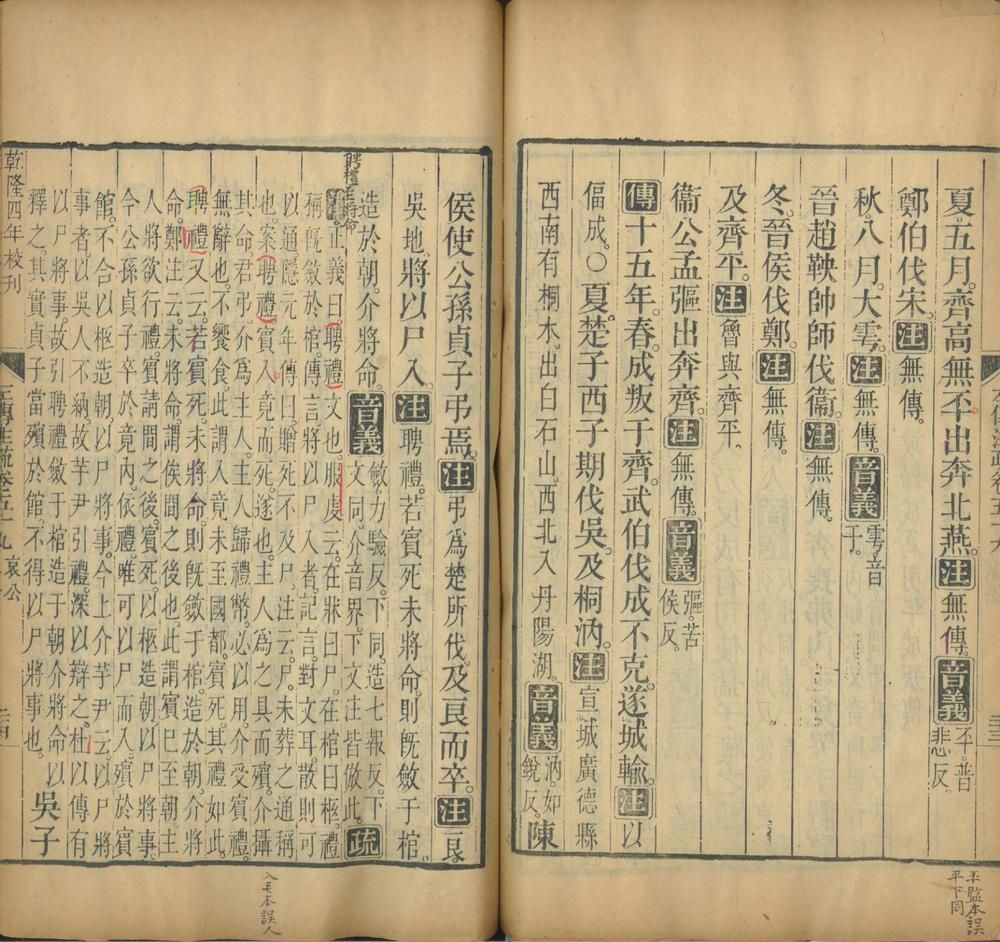 夏五月。齊高無㔻出奔北燕。注無傳。音義㔻。普悲反。
鄭伯伐宋。注無傳。
秋。八月。大雩。注無傳。音義雩音于。
晉趙鞅帥師伐衞。注無傳。
冬。晉侯伐鄭。注無傳。
及齊平。注魯與齊平。
衞公孟彄出奔齊。注無傳。音義彄。苦侯反。
傳十五年。春。成叛于齊。武伯伐成不克。遂城輸。注以
偪成。○夏。楚子西子期伐吳。及桐汭。注宣城廣德縣
西南有桐水。出白石山。西北入丹陽湖。音義汭。如銳反。陳
㔻監本誤
平下同
侯使公孫貞子弔焉。注弔爲楚所伐。及良而卒。注良。
吳地。將以尸入。注聘禮。若賓死未將命。則旣斂于棺。
造於朝。介將命。音義斂。力驗反。下同。造七報反。下文同。介音界。下文注皆倣此。疏
聘禮至將命
正義曰。聘禮文也。服虔云。在牀曰尸。在棺曰柩。禮
稱旣斂於棺。傳言將以尸入者。記言。對文耳。散則可
以通。隱元年傳曰。贈死不及尸。注云。尸。未葬之通稱
也。案。聘禮。賓入竟而死。遂也。主人爲之具而殯。介攝
其命。君弔。介爲主人。主人歸禮幣。必以用。介受賓禮。
無辭也。不饗食。此謂入竟未至國都。賓死。其禮如此。
聘禮又云。若賓死。未將命。則旣斂于棺。造於朝。介將
命。鄭注云。未將命。謂俟間之後也。此謂賓巳至朝。主
人將欲行禮。賓請間之後。賓死。以柩造朝。以尸將事。
今公孫貞子卒於竟內。依禮。唯可以尸而入。殯於賓
館。不合以柩造朝。以尸將事。今上介芋尹云。以尸將
事者。以吳人不納。故芋尹引禮。深以辯之。杜以傳有
以尸將事。故引聘禮斂于棺造于朝介將命以
釋之。其實貞子當殯於館。不得以尸將事也。吳子
乾隆四年校刊
哀公
入毛本誤人